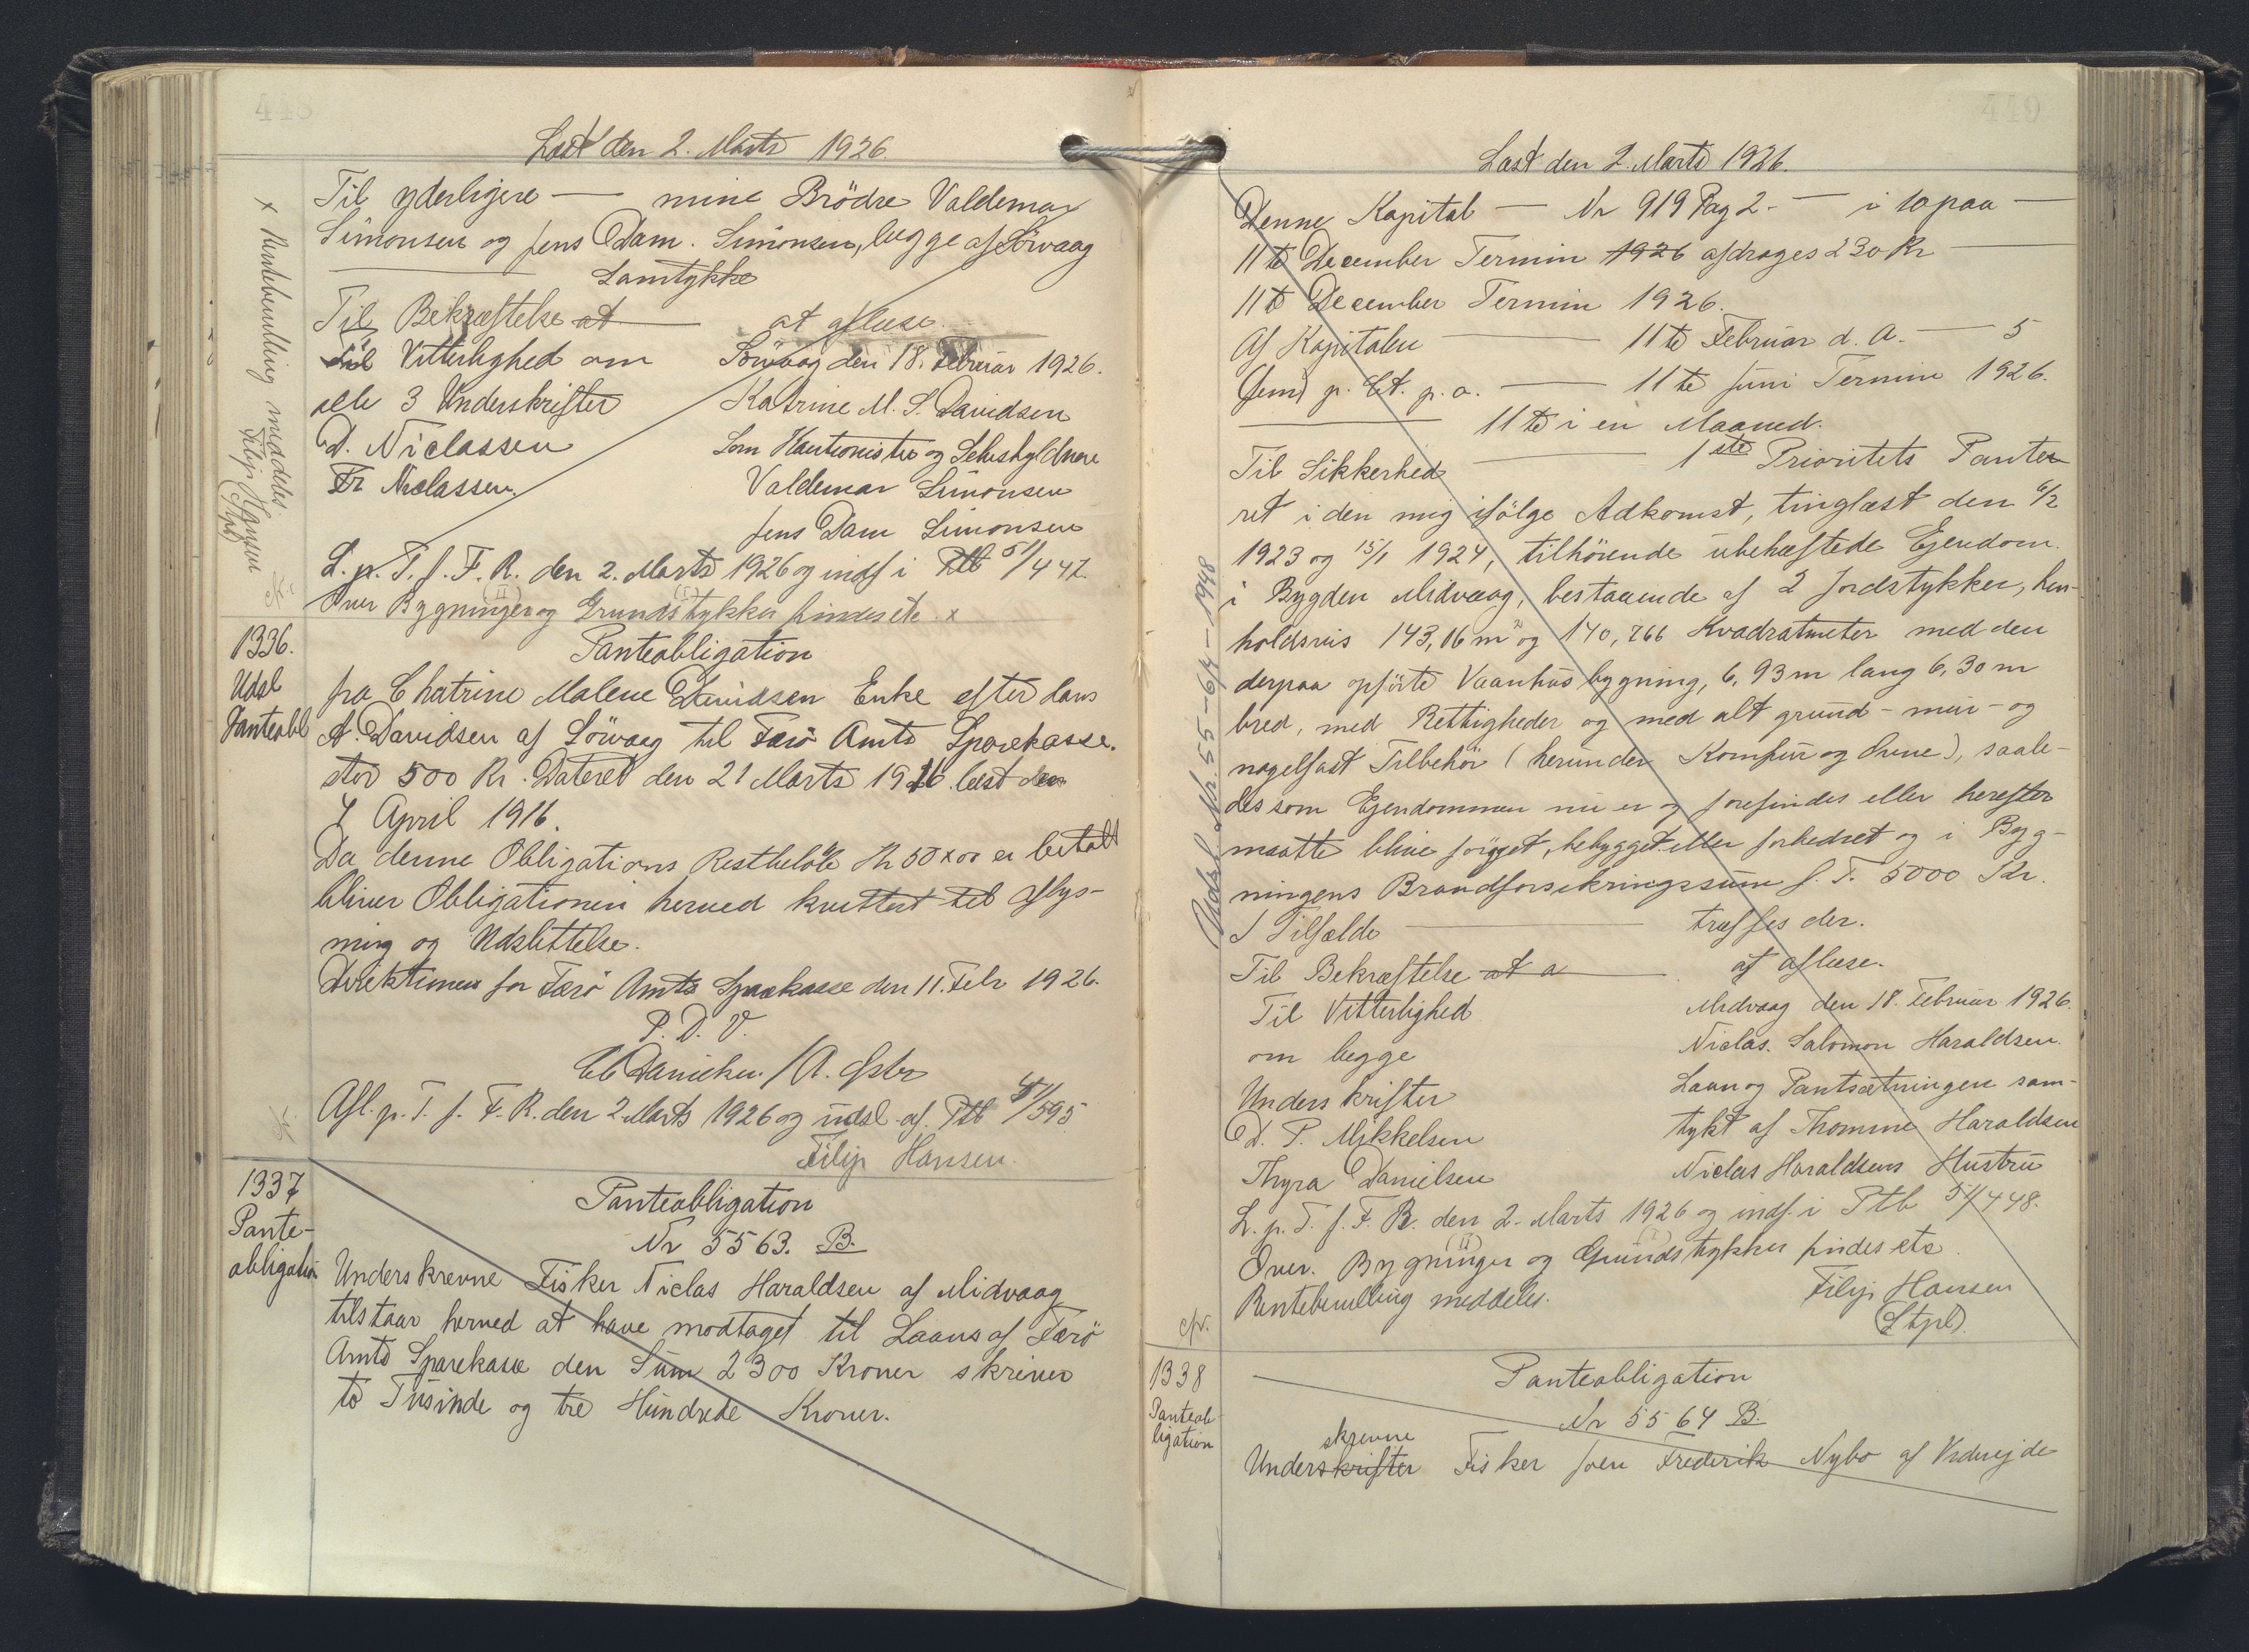 448
Læst den 2. Marts 1926.
Til yderligere — mine Brödre Valdemar
Simonsen og Jens Dam. Simonsen, begge af Sörvaag
Samtykke
Til Bekræftelse at — at aflæse.
Til Vitterlighed om Sörvaag den 18. Februar 1926.
alle 3 Underskrifter Katrine M. S. Davidsen
D. Niclassen Som Kautionister og Selvskyldnere
Fr Niclassen. Valdemar Simonsen
Jens Dam Simonsen
L. p. T. f. F. R. den 2. Marts 1926 og indf i Ptb 51/447.
Over Bygninger (II) og Grundstykker (I) findes etc. x
x Rentebevilling meddeles.
Filip Hansen
(Stpl)
1336.
Udsl
Panteobl
Panteobligation
fra Chatrine Malene Davidsen Enke efter Hans
A. Davidsen af Sörvaag til Færö Amts Sparekasse.
stor 500 Kr. Dateret den 21 Marts 1916 læst den
7 April 1916.
Da denne Obligations Restbelöb Kr 50 x 00 er betalt
bliver Obligationen herved kvitteret til Aflys-
ning og Udslettelse.
Direktionen for Færö Amts Sparekasse den 11. Febr 1926.
P. D. V.
Afl. p. T. f. F. R. den 2 Marts 1926 og udsl. af. Ptb 41/595
Filip Hansen.
1337
Pante-
obligation
Panteobligation
Nr 5563. B.
Underskrevne Fisker Niclas Haraldsen af Midvaag
tilstaar herved at have modtaget til Laans af Færö
Amts Sparekasse den Sum 2300 Kroner skriver
to Tusinde og tre Hundrede Kroner.
449
Læst den 2. Marts 1926.
Denne Kapital — Nr 919 Pag 2. — i 10 paa —
11te December Termin 1926 afdrages 230 Kr —
11te December Termin 1926.
Af Kapitalen — 11te Februar d. A. — 5
(fem) p. Ct. p. a. — 11te Juni Termin 1926.
— 11te i en Maaned.
Til Sikkerhed — 1ste Prioritets Pante-
ret i den mig ifölge Adkomst, tinglæst den 6/2
1923 og 15/1 1924, tilhörende ubehæftede Ejendom
i Bygden Midvaag, bestaaende af 2 Jordstykker, hen-
holdsvis 143,06 m² og 140,766 Kvadratmeter med den
derpaa opförte Vaanhusbygning, 6,93 m lang 6,30 m
bred, med Rettigheder og med alt grund- mur- og
nagelfast Tilbehör (herunder Komfur og Ovne), saale-
des som Ejendommen nu er og forefindes eller herefter
maatte blive foröget, bebygget eller forbedret og i Byg-
ningens Brandforsikringssum f. T. 5000 Kr.
I Tilfælde — træffes der.
Til Bekræftelse at a — at aflæse.
Til Vitterlighed Midvaag den 18. Februar 1926.
om begge Niclas. Salomon Haraldsen.
Underskrifter Laan og Pantsætningen sam-
D. P. Mikkelsen tykt af Thomine Haraldsen
Thyra Danielsen Niclas Haraldsens Hustru
L. p. T. f. F. R. den 2. Marts 1926 og indf. i Ptb 51/448.
Over. Bygninger (II) og Grundstykker (I) findes etc.
Rentebevilling meddeles. Filip Hansen
(Stpl).
Udsl. Nr. 55-64-1948
cfr.
1338
Panteob-
ligation
Panteobligation
Nr 5564 B.
skrevne
Underskrifter Fisker Joen Frederik Nybo af Viderejde